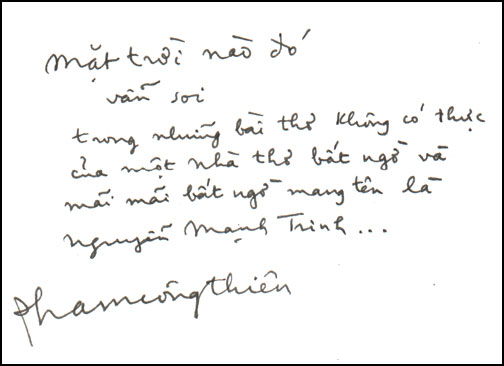 mặt trời nào đó
vẫn soi
trong những bài thơ không có thực
của một nhà thơ bất ngờ và
mãi mãi bất ngờ mang tên là
nguyễn mạnh Trinh...
phamcôngthiên